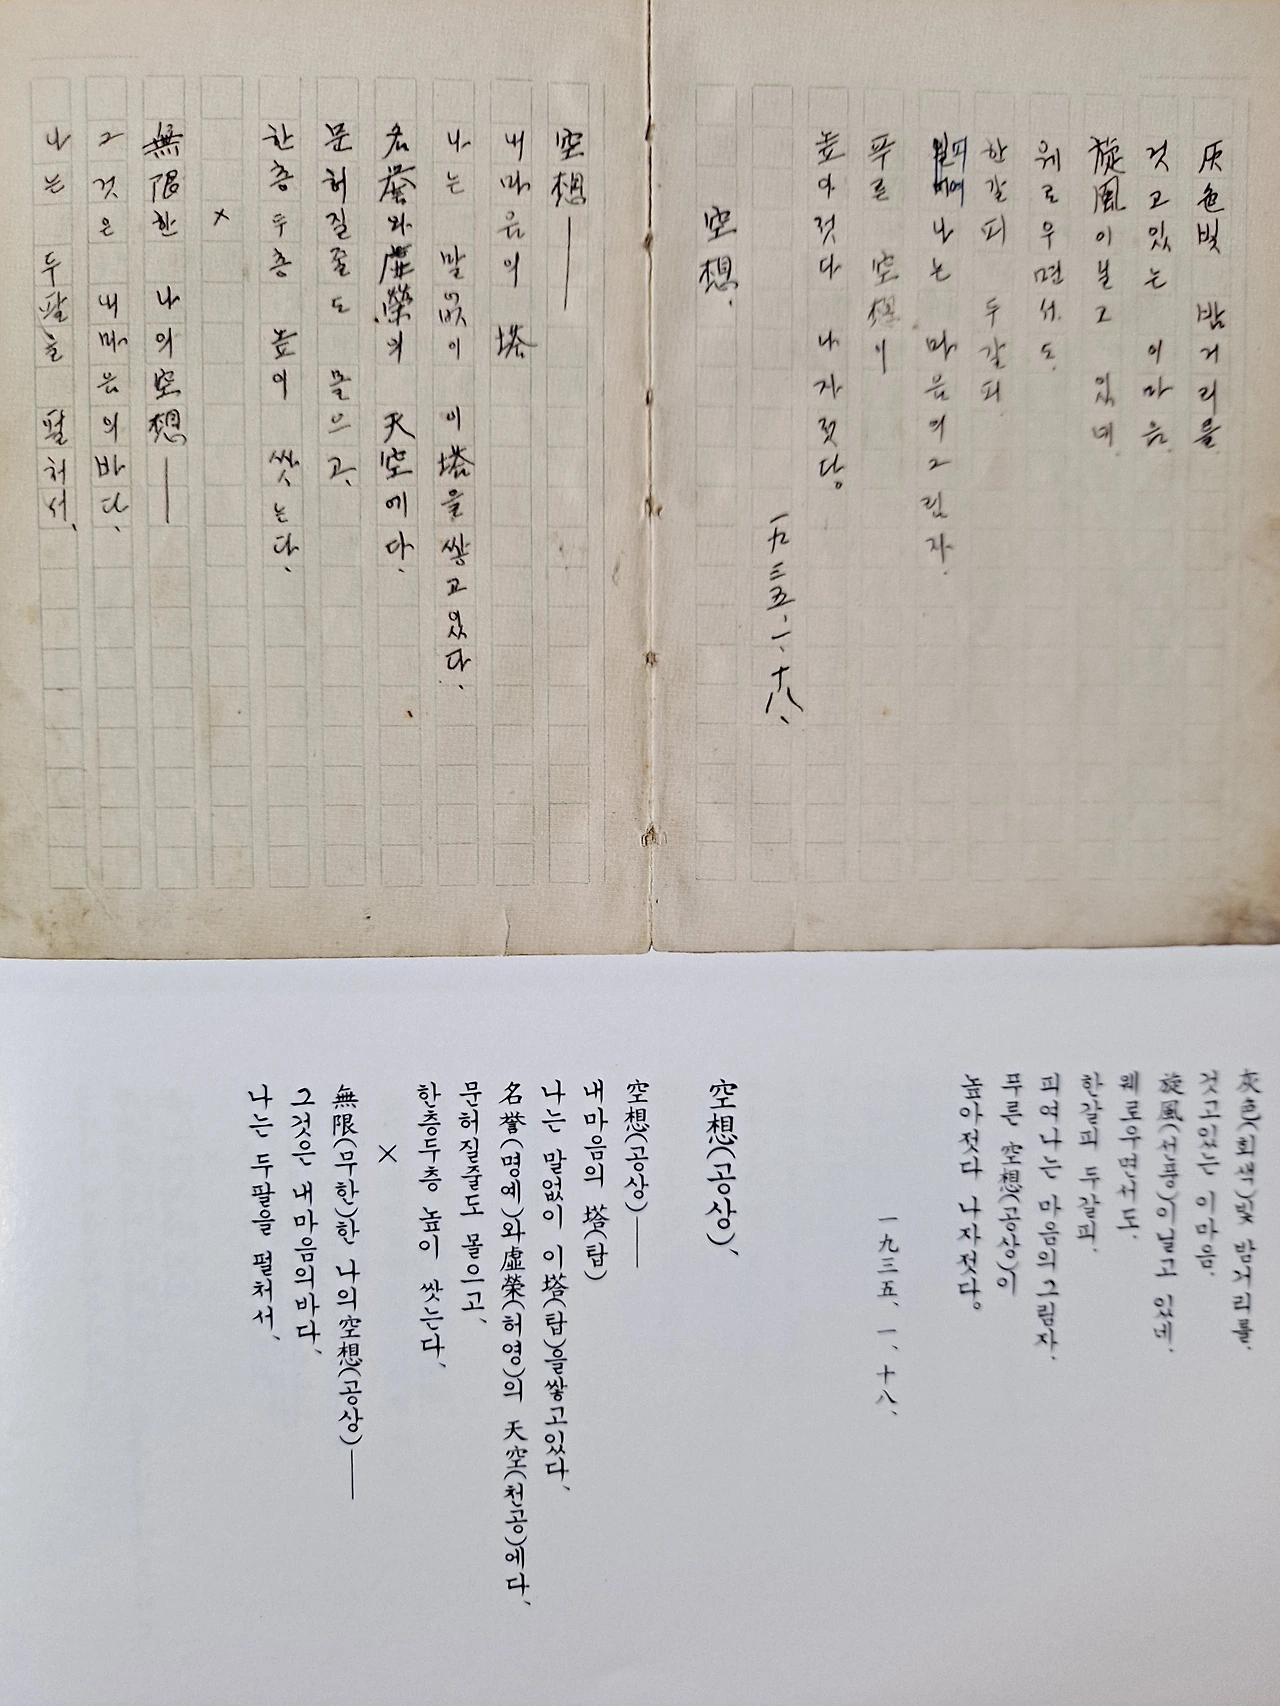 灰色빛 밤거리를
것고있는 이마음.
旋風이닐고 있네.
웨로우면서도.
한갈피 두갈피
피여나는 마음의그림자.
푸른 空想이
높아젓다 나자젓다.
一九三五、一、十八、
空想、
空想——
내마음의 塔
나는 말없이 이塔을쌓고있다、
名誉와虛榮의 天空에다、
문허질줄도 몰으고、
한층두층 높이 쌋는다、
×
無限한 나의空想——
그것은 내마음의바다、
나는 두팔을 펼처서、
灰色(회색)빛 밤거리를.
것고있는 이마음.
旋風(선풍)이닐고 있네.
웨로우면서도.
한갈피 두갈피.
피여나는 마음의그림자.
푸른 空想(공상)이
높아젓다 나자젓다。
一九三五、一、十八、
空想(공상)、
空想(공상)——
내마음의 塔(탑)
나는 말없이 이塔(탑)을쌓고있다、
名誉(명예)와虛榮(허영)의 天空(천공)에다、
문허질줄도 몰으고、
한층두층 높이 쌋는다、
×
無限(무한)한 나의空想(공상)——
그것은 내마음의바다、
나는 두팔을 펼처서、